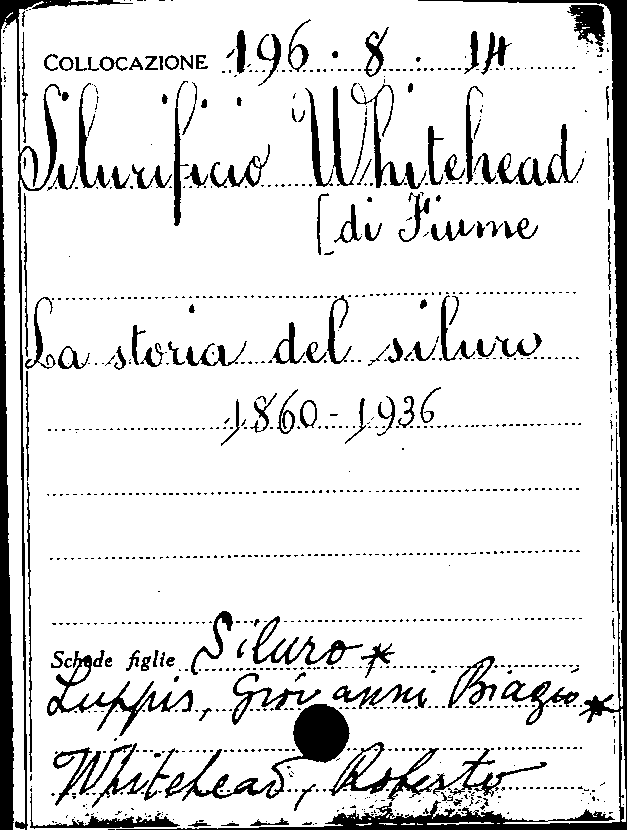 COLLOCAZIONE 196 . 8 . 14
Silurificio Whitehead
[di Fiume
La storia del siluro
1860-1936
Schede figlie Siluro *
Luppis, Giovanni Biagio *
Whitehead, Roberto